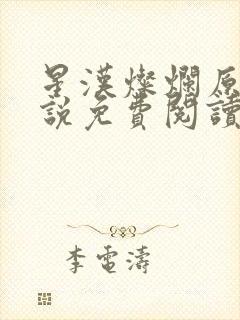 星漢燦爛原
說免費閱讀
李電濤